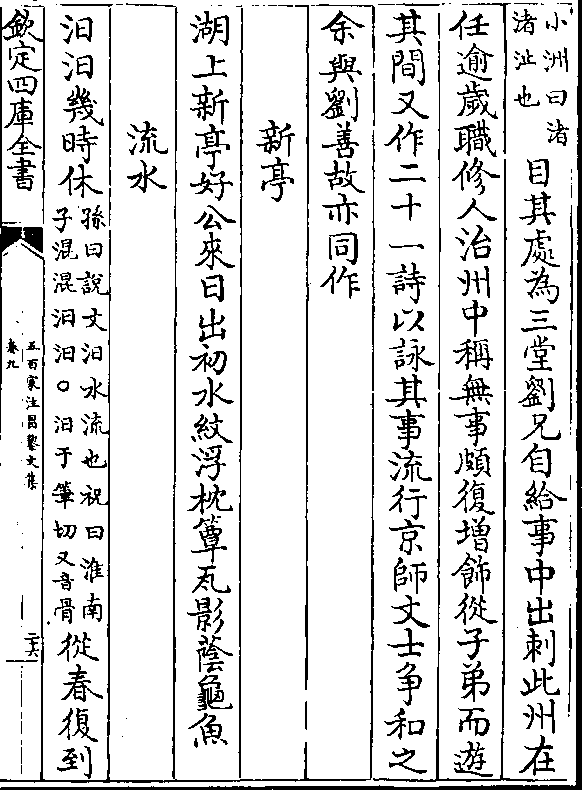 小洲曰渚
渚沚也
目其處為三堂劉兄自給事中出刺此州在
任逾歲職修人治州中稱無事頗復增飾從子弟而遊
其間又作二十一詩以詠其事流行京師文士争和之
余與劉善故亦同作
新亭
湖上新亭好公來日出初水紋浮枕簟瓦影蔭龜魚
流水
汩汩幾時休
孫曰說文汩水流也祝曰淮南
子混混汩汩○汩于筆切又音骨
從春復到
欽定四庫全書
五百家注昌黎文集
卷九